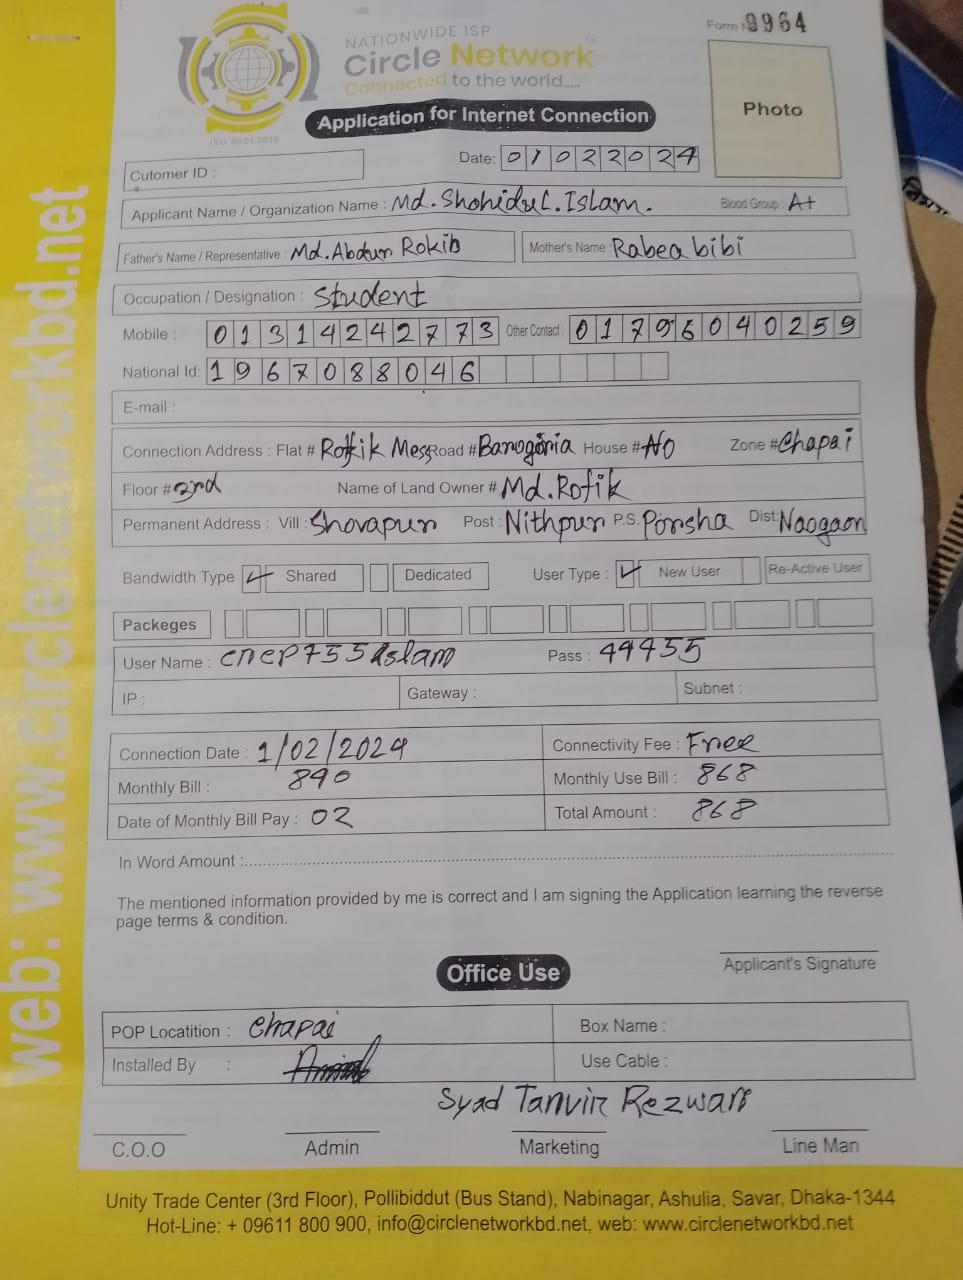 Form 9964
NATIONWIDE ISP
Circle Network
Connected to the world.....
ISO 9001:2015
Photo
Application for Internet Connection
Date: 01022024
Cutomer ID :
Applicant Name / Organization Name : Md. Shohidul. Islam. Blood Group : A+
Father's Name / Representative : Md. Abdur Rokib Mother's Name : Rabea bibi
Occupation / Designation : Student
Mobile : 01314242773 Other Contact : 01796040259
National Id: 1967088046
E-mail :
Connection Address : Flat # Rofik Mess Road # Barogoria House # No Zone # Chapai
Floor # 3rd Name of Land Owner # Md. Rofik
Permanent Address : Vill : Shovapur Post : Nithpur P.S. Porsha Dist: Naogaon
Bandwidth Type Shared Dedicated User Type : New User Re-Active User
Packeges
User Name : cnep755islam Pass : 44455
IP : Gateway : Subnet :
Connection Date : 1/02/2024 Connectivity Fee : Free
Monthly Bill : 890 Monthly Use Bill : 868
Date of Monthly Bill Pay : 02 Total Amount : 868
In Word Amount :
The mentioned information provided by me is correct and I am signing the Application learning the reverse
page terms & condition.
Applicant's Signature
Office Use
POP Locatition : Chapai Box Name :
Installed By : Use Cable :
Syad Tanvir Rezwan
C.O.O Admin Marketing Line Man
Unity Trade Center (3rd Floor), Pollibiddut (Bus Stand), Nabinagar, Ashulia, Savar, Dhaka-1344
Hot-Line: + 09611 800 900, info@circlenetworkbd.net, web: www.circlenetworkbd.net
web: www.circlenetworkbd.net